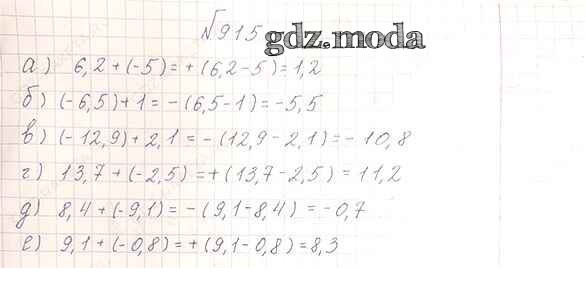 №915 gdz.moda
а) 6,2 + (-5) = + (6,2 - 5) = 1,2
б) (-6,5) + 1 = - (6,5 - 1) = -5,5
в) (-12,9) + 2,1 = - (12,9 - 2,1) = - 10,8
г) 13,7 + (-2,5) = + (13,7 - 2,5) = 11,2
д) 8,4 + (-9,1) = - (9,1 - 8,4) = -0,7
е) 9,1 + (-0,8) = + (9,1 - 0,8) = 8,3